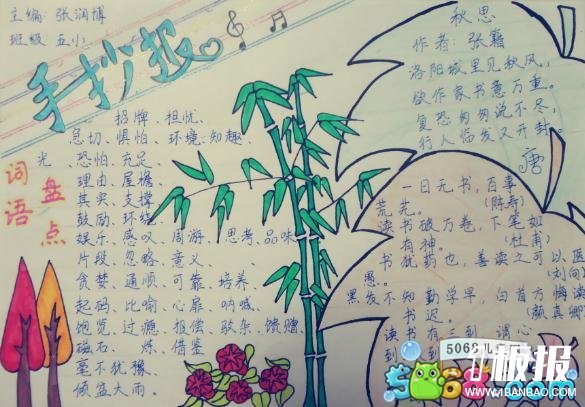 主编:张润博
班级:五小
手抄报
招牌、担忧、
急切、惧怕、环境、知趣、
光、恐怕、充足、
理由、屋檐、
其实、支撑、
鼓励、环绕、
娱乐、感叹、周游、思考、品味
片段、忽略、意义、
贪婪、通顺、可靠、培养、
起码、比喻、心扉、呐喊、
饱览、过瘾、相偿、驮车、馈赠
磁石、烁、借鉴
毫不犹豫、
倾盆大雨。
词语
盘点
秋思
作者:张籍
洛阳城里见秋风,
欲作家书意万重。
复恐匆匆说不尽,
行人临发又开封。
唐
一日无书,百事
荒芜。(陈寿)
读书破万卷,下笔如
有神。(杜甫)
书犹药也,善读之可以医
愚。(刘向
黑发不知勤学早,白首方悔读
书迟。(颜真卿
读书有三到,谓心
到
5068儿
5068.com
板报
WWW.1BANBAO.COM